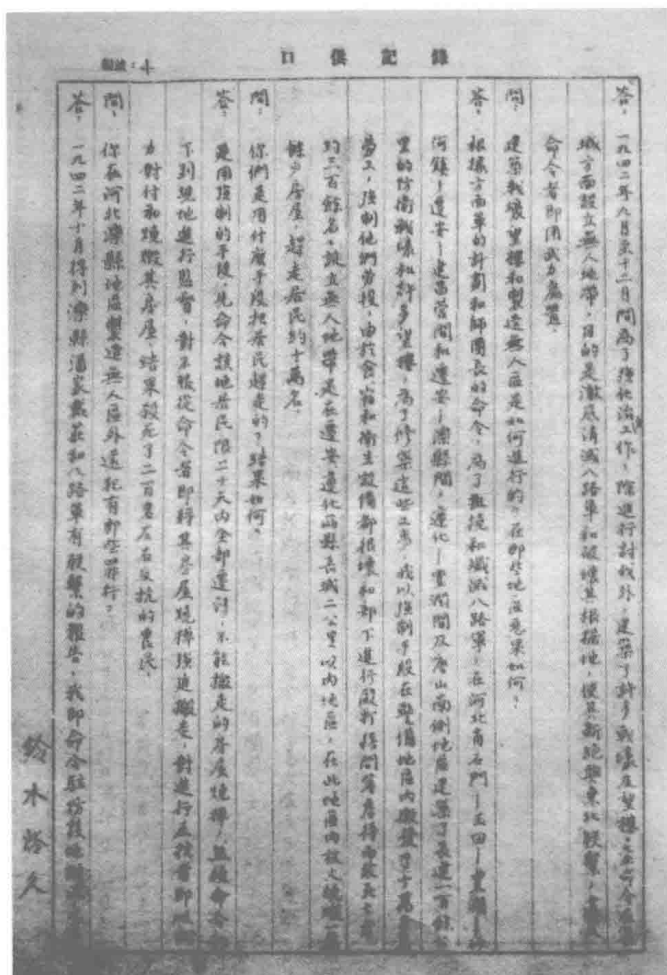 口供記錄
編號：4
答：一九四二年九月至十二月間為了強化治工作，除進行討伐外，建築了許多戰壕及望樓，並命令在長
城方面設立無人地帶，目的是澈底清滅八路軍和破壞其根據地，使其斷絕與東北联繫，
命令者即用武力處置。
問：建築戰壕望樓和製造無人區是如何進行的？在那些地區惡果如何？
答：根據方面軍的計劃和師團長的命令，為了阻擾和殲滅八路軍，在河北省石門—玉田—豐潤—沙
河鎮—遷安—建昌營間和遷安—灤縣間，遵化—豐潤間及唐山南側地區建築了長達一百餘公
里的防衛戰壕和許多望樓，為了修築這些工事，我以強制手段在警備地區內徵發了十萬名
勞工，強制他們勞役，由於食、宿和衛生設備都很壞和部下進行毆打拷問等虐待而致死
約三百餘名，設立無人地帶是在遷安、遵化兩縣長城二公里以內地區，在此地區內放火燒毀一萬
餘戶房屋，趕走居民約十萬名。
問：你們是用什麼手段把居民趕走的？結果如何？
答：是用強制的手段，先命令該地居民限二十天內全部遷移，不能搬走的房屋燒掉，並命令部
下到現地進行監督，對不服從命令者即將其房屋燒掉強迫搬走，對進行反抗者即以武
力對付和燒毀其房屋，結果殺死了二百名左右反抗的農民。
問：你在河北灤縣地區製造無人區外還犯有那些罪行？
答：一九四二年十月得到灤縣潘家戴莊和八路軍有联繫的報告，我即命令駐
鈴木啓久